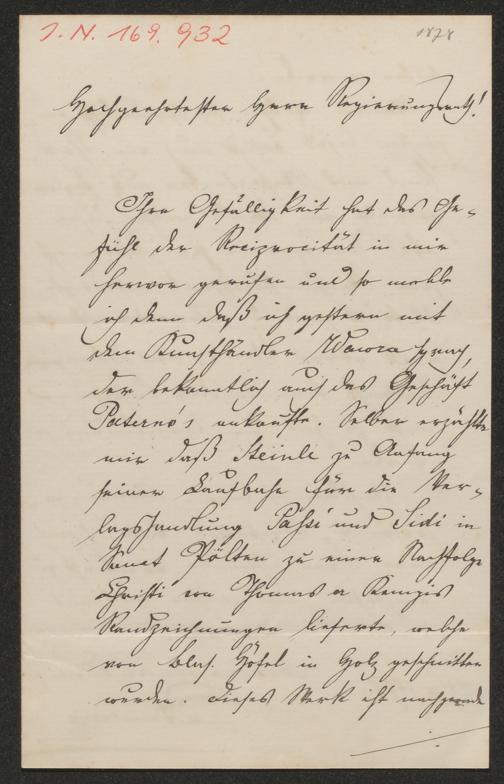 J. N. 169.932
1878
Hochgeehrtester Herr Regierungsrath!
Ihre Gefälligkeit hat das Ge-
fühl der Reciprocität in mir
hervor gerufen und so melde
ich denn daß ich gestern mit
dem Kunsthändler Wawra sprach,
der bekanntlich auch das Geschäft
Paterno's ankaufte. Selber erzählte
mir daß Steinle zu Anfang
seiner Laufbahn für die Ver-
lagshandlung Passi und Sidi in
Sanct Pölten zu einer Nachfolge
Christi von Thomas a Kempis
Randzeichnungen lieferte, welche
von Blas. Höfel in Holz geschnitten
wurden. Dieses Werk ist